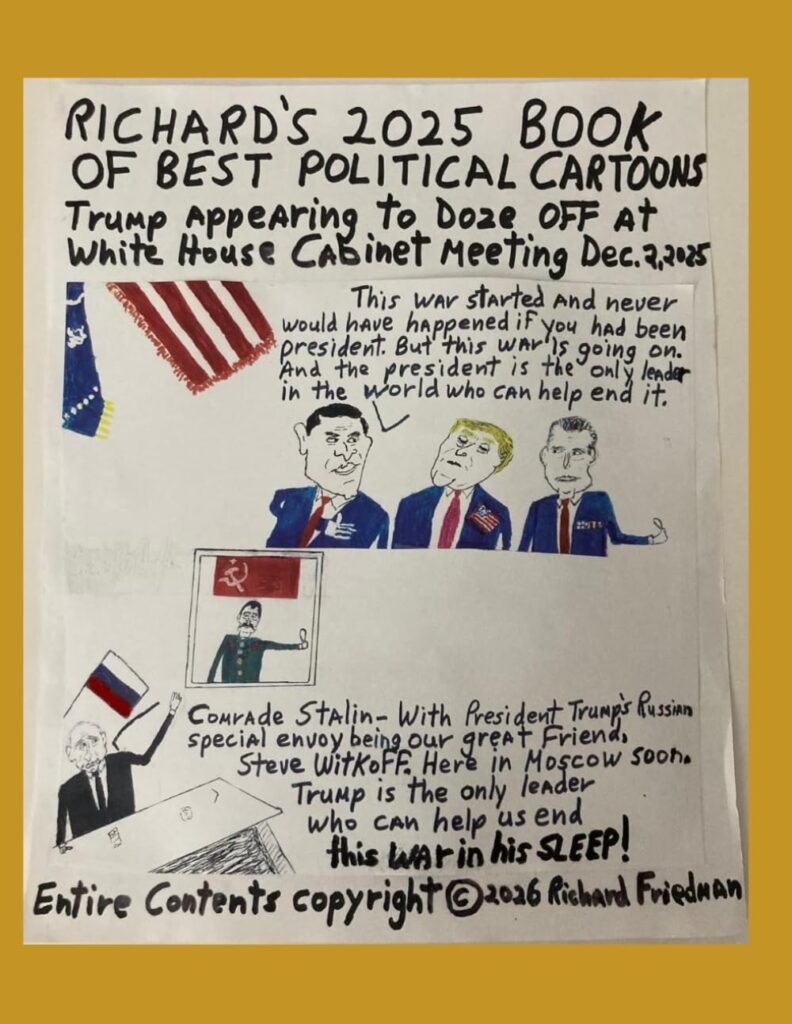 RICHARD'S 2025 BOOK
OF BEST POLITICAL CARTOONS
Trump Appearing to Doze OFF At
White House Cabinet Meeting Dec. 2, 2025
This war started and never
would have happened if you had been
president. But this war is going on.
And the president is the only leader
in the world who can help end it.
Comrade Stalin- With President Trump's Russian
special envoy being our great Friend,
Steve Witkoff. Here in Moscow soon.
Trump is the only leader
who can help us end
this war in his SLEEP!
Entire Contents copyright © 2026 Richard Friedman